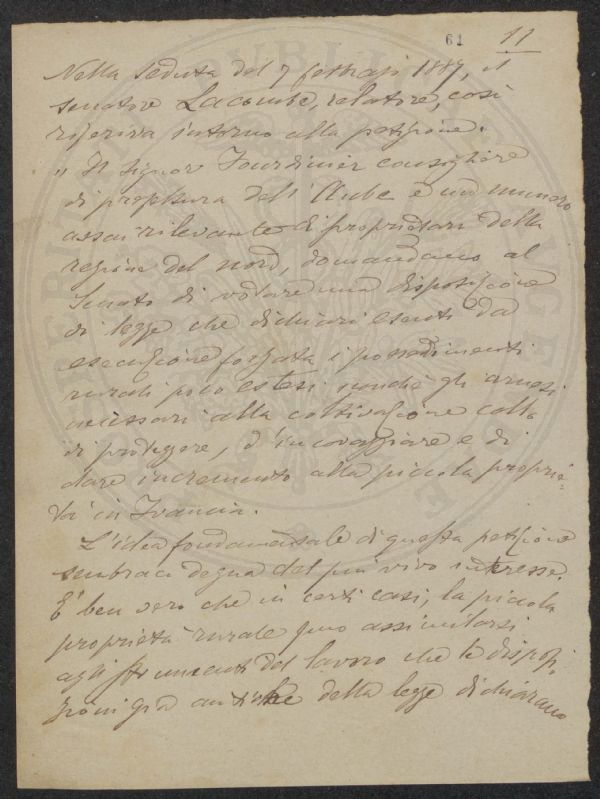 61 11
Nella seduta del 7 febbrajo 1887, il
senatore Lacombe, relatore, così
riferiva intorno alla petizione.
"Il signor Jourdinier consigliere
di prefettura dell'Aube e un numero
assai rilevante di proprietari della
regione del nord, domandano al
Senato di votare una disposizione
di legge che dichiari esenti da
esecuzione forzata i possedimenti
rurali poco estesi nonchè gli arnesi
necessari alla coltivazione collo
di proteggere, d'incoraggiare e di
dare incremento alla piccola proprie-
tà in Francia.
L'idea fondamentale di questa petizione
sembraci degna del più vivo interesse.
E' ben vero che in certi casi, la piccola
proprietà rurale può assimilarsi
agli strumenti del lavoro che le disposi-
zioni già antiche della legge dichiarano